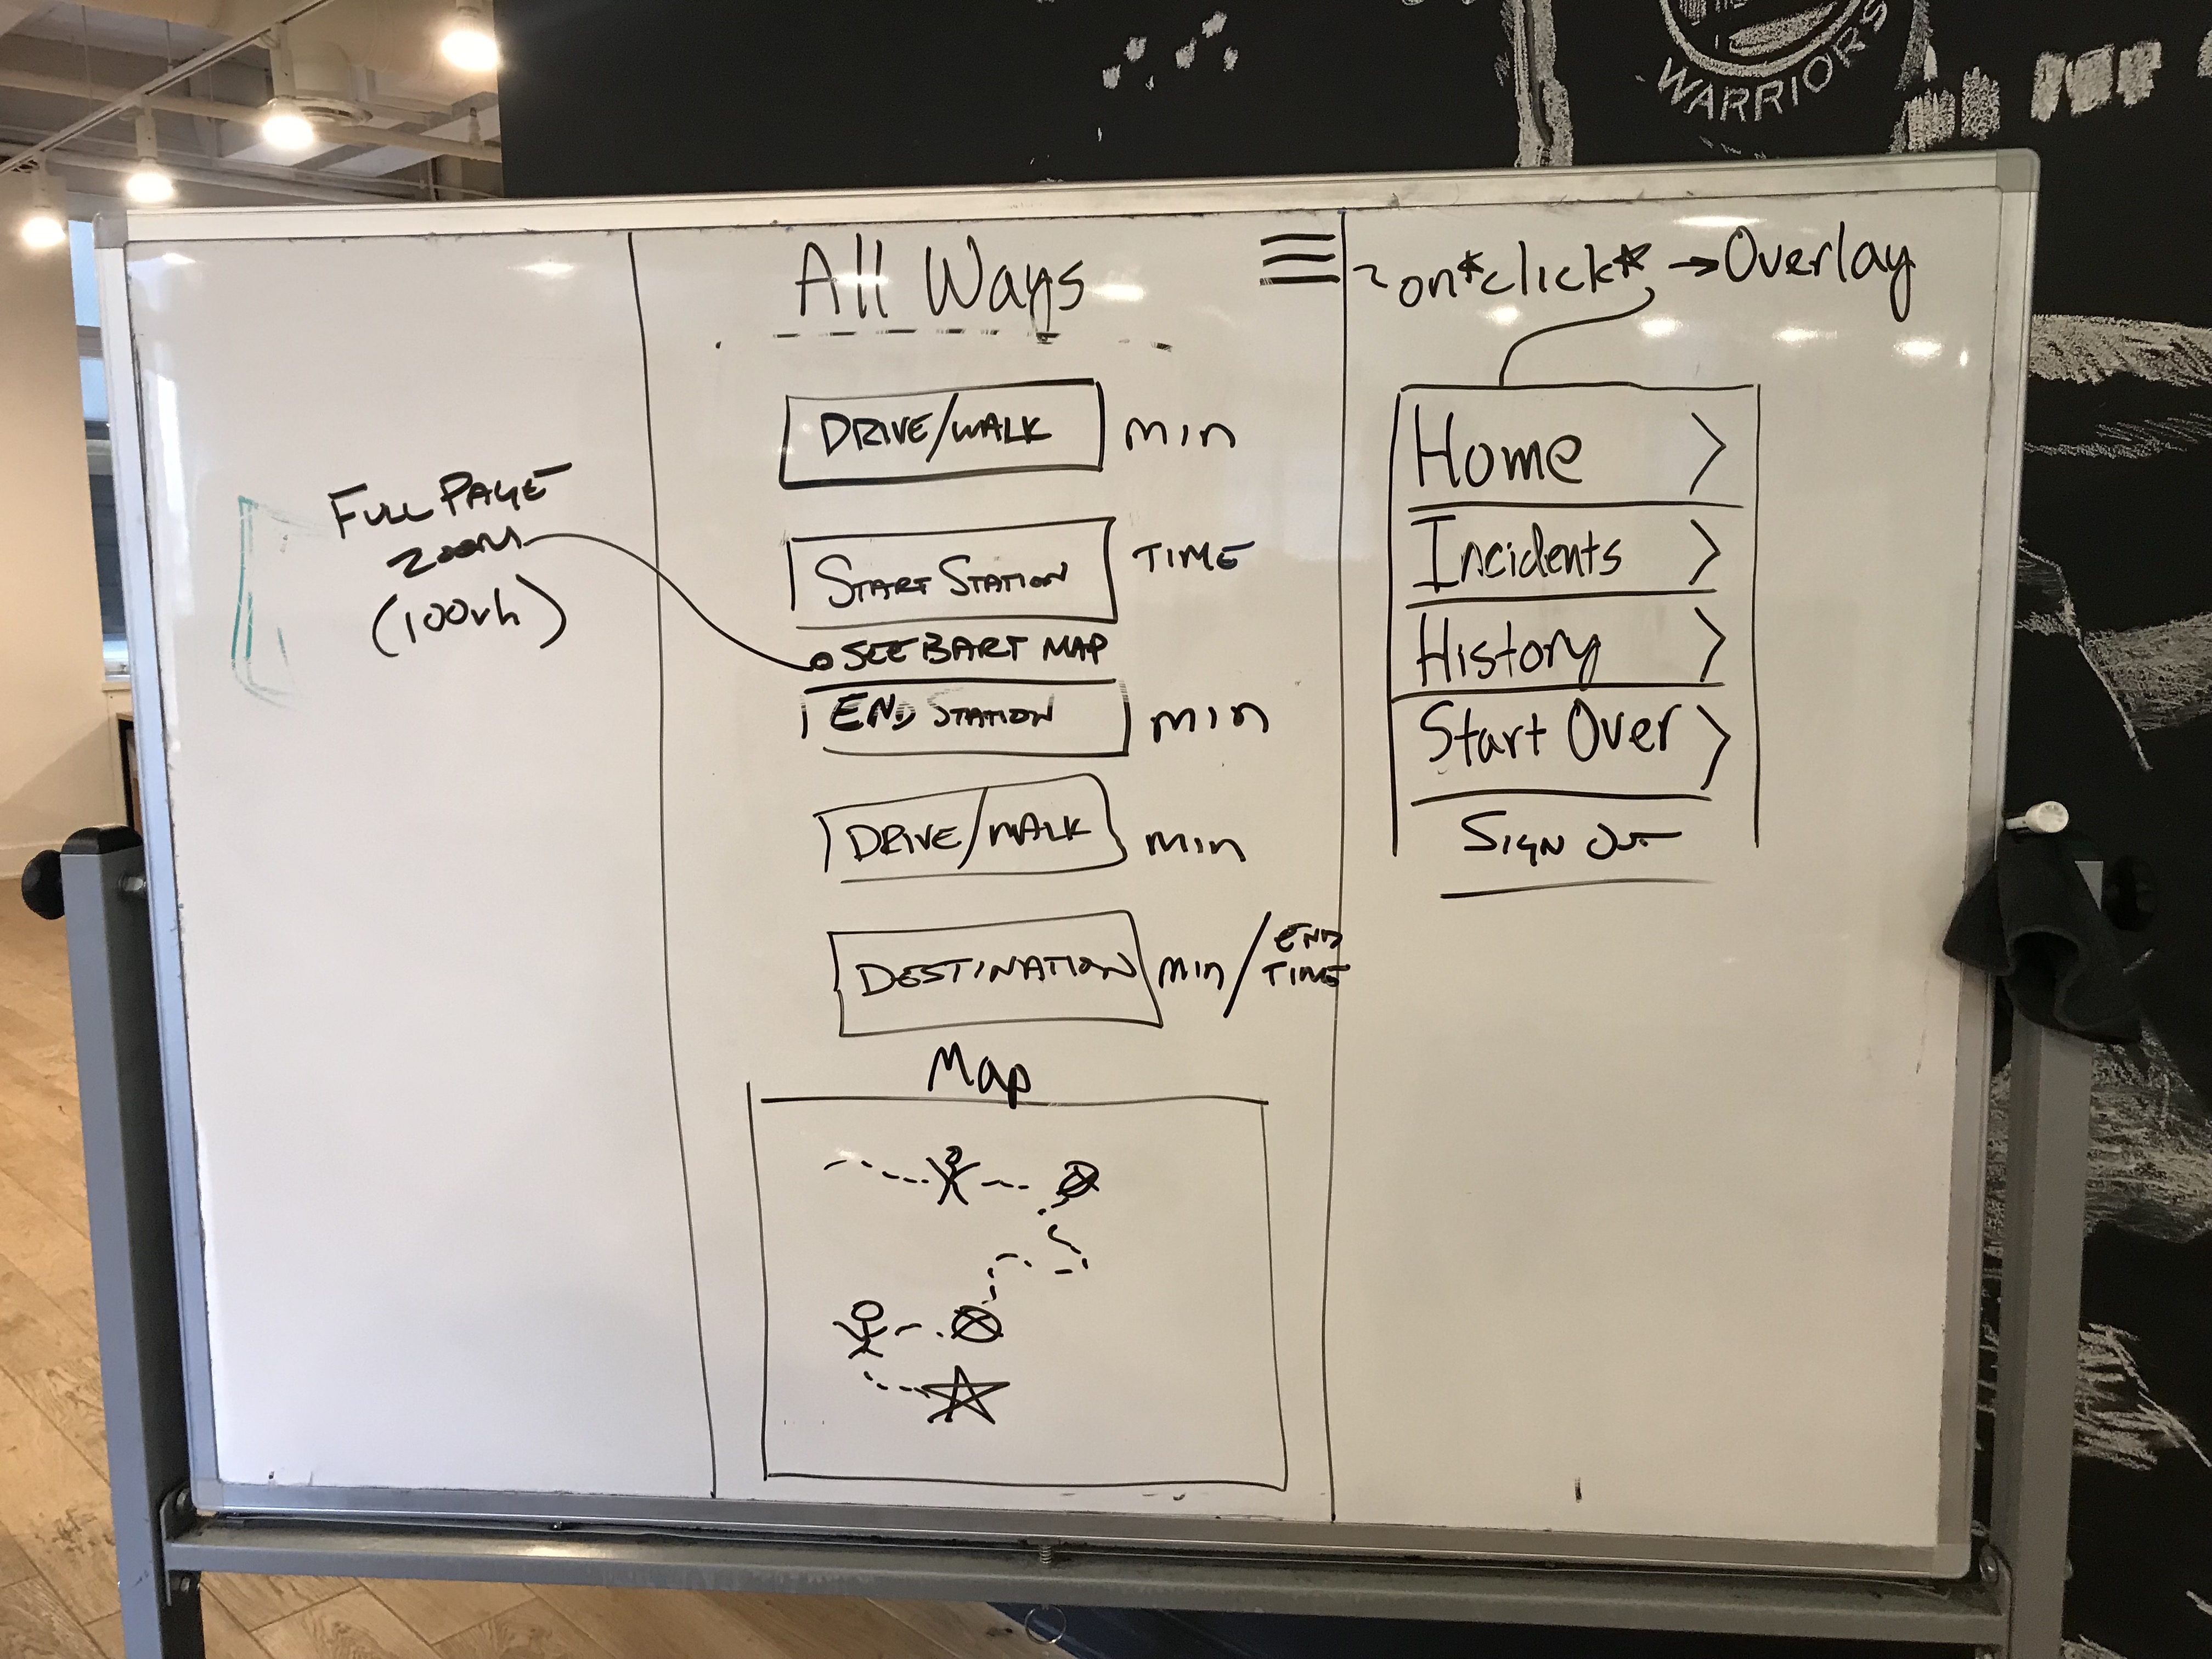 WARRIORS
All Ways
~on*click* → Overlay
DRIVE/WALK min
START STATION TIME
SEE BART MAP
END STATION min
DRIVE/WALK min
DESTINATION min / END TIME
Map
FULL PAGE
ZOOM
(100vh)
Home >
Incidents >
History >
Start Over >
SIGN OUT